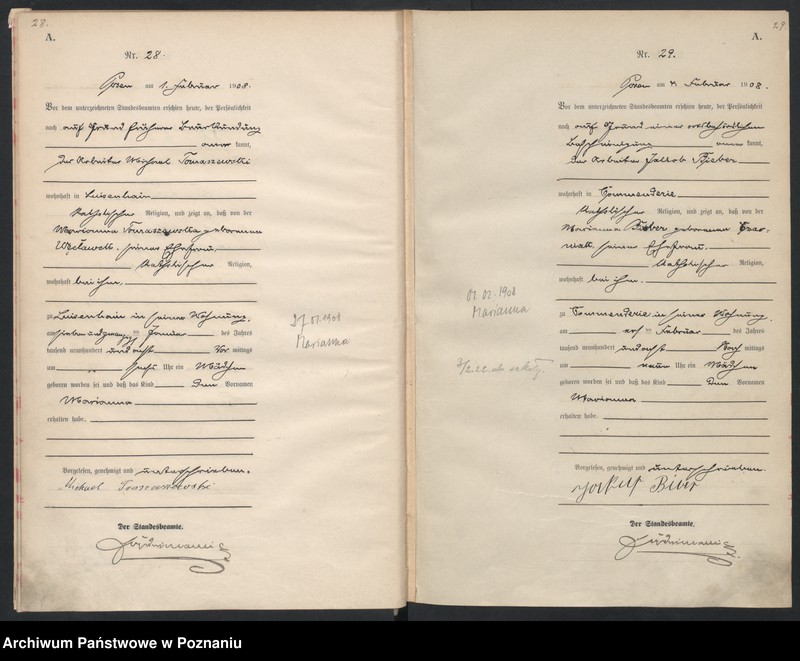 28.
A.
Nr. 28.
Posen am 1. Februar 1908.
Vor dem unterzeichneten Standesbeamten erschien heute, der Persönlichkeit
nach auf Grund früherer Beurkundung
kannt,
der Arbeiter Michael Tomaszewski
wohnhaft in Luisenhain
katholischer Religion, und zeigt an, daß von der
Marianna Tomaszewska geborenen
Węclawek, seiner Ehefrau,
katholischer Religion,
wohnhaft bei ihm,
zu Luisenhain in seiner Wohnung,
am sieben und zwanzigsten Januar des Jahres
tausend neunhundert und acht Vor mittags
um sechs Uhr ein Mädchen
geboren worden sei und daß das Kind den Vornamen
Marianna
erhalten habe.
Vorgelesen, genehmigt und unterschrieben.
Michael Tomaszewski
Der Standesbeamte.
27.01.1908
Marianna
29.
A.
Nr. 29.
Posen am Februar 1908.
Vor dem unterzeichneten Standesbeamten erschien heute, der Persönlichkeit
nach auf Grund einer ortsbehördlichen
Bescheinigung kannt,
der Arbeiter Jakob Bieber
wohnhaft in Commenderie
katholischer Religion, und zeigt an, daß von der
Marianna Bieber geborenen
seiner Ehefrau,
katholischer Religion,
wohnhaft bei ihm,
zu Commenderie in seiner Wohnung,
am ersten Februar des Jahres
tausend neunhundert und acht Nach mittags
um neun Uhr ein Mädchen
geboren worden sei und daß das Kind den Vornamen
Marianna
erhalten habe.
Vorgelesen, genehmigt und unterschrieben.
Der Standesbeamte.
01.02.1908
Marianna
Archiwum Państwowe w Poznaniu